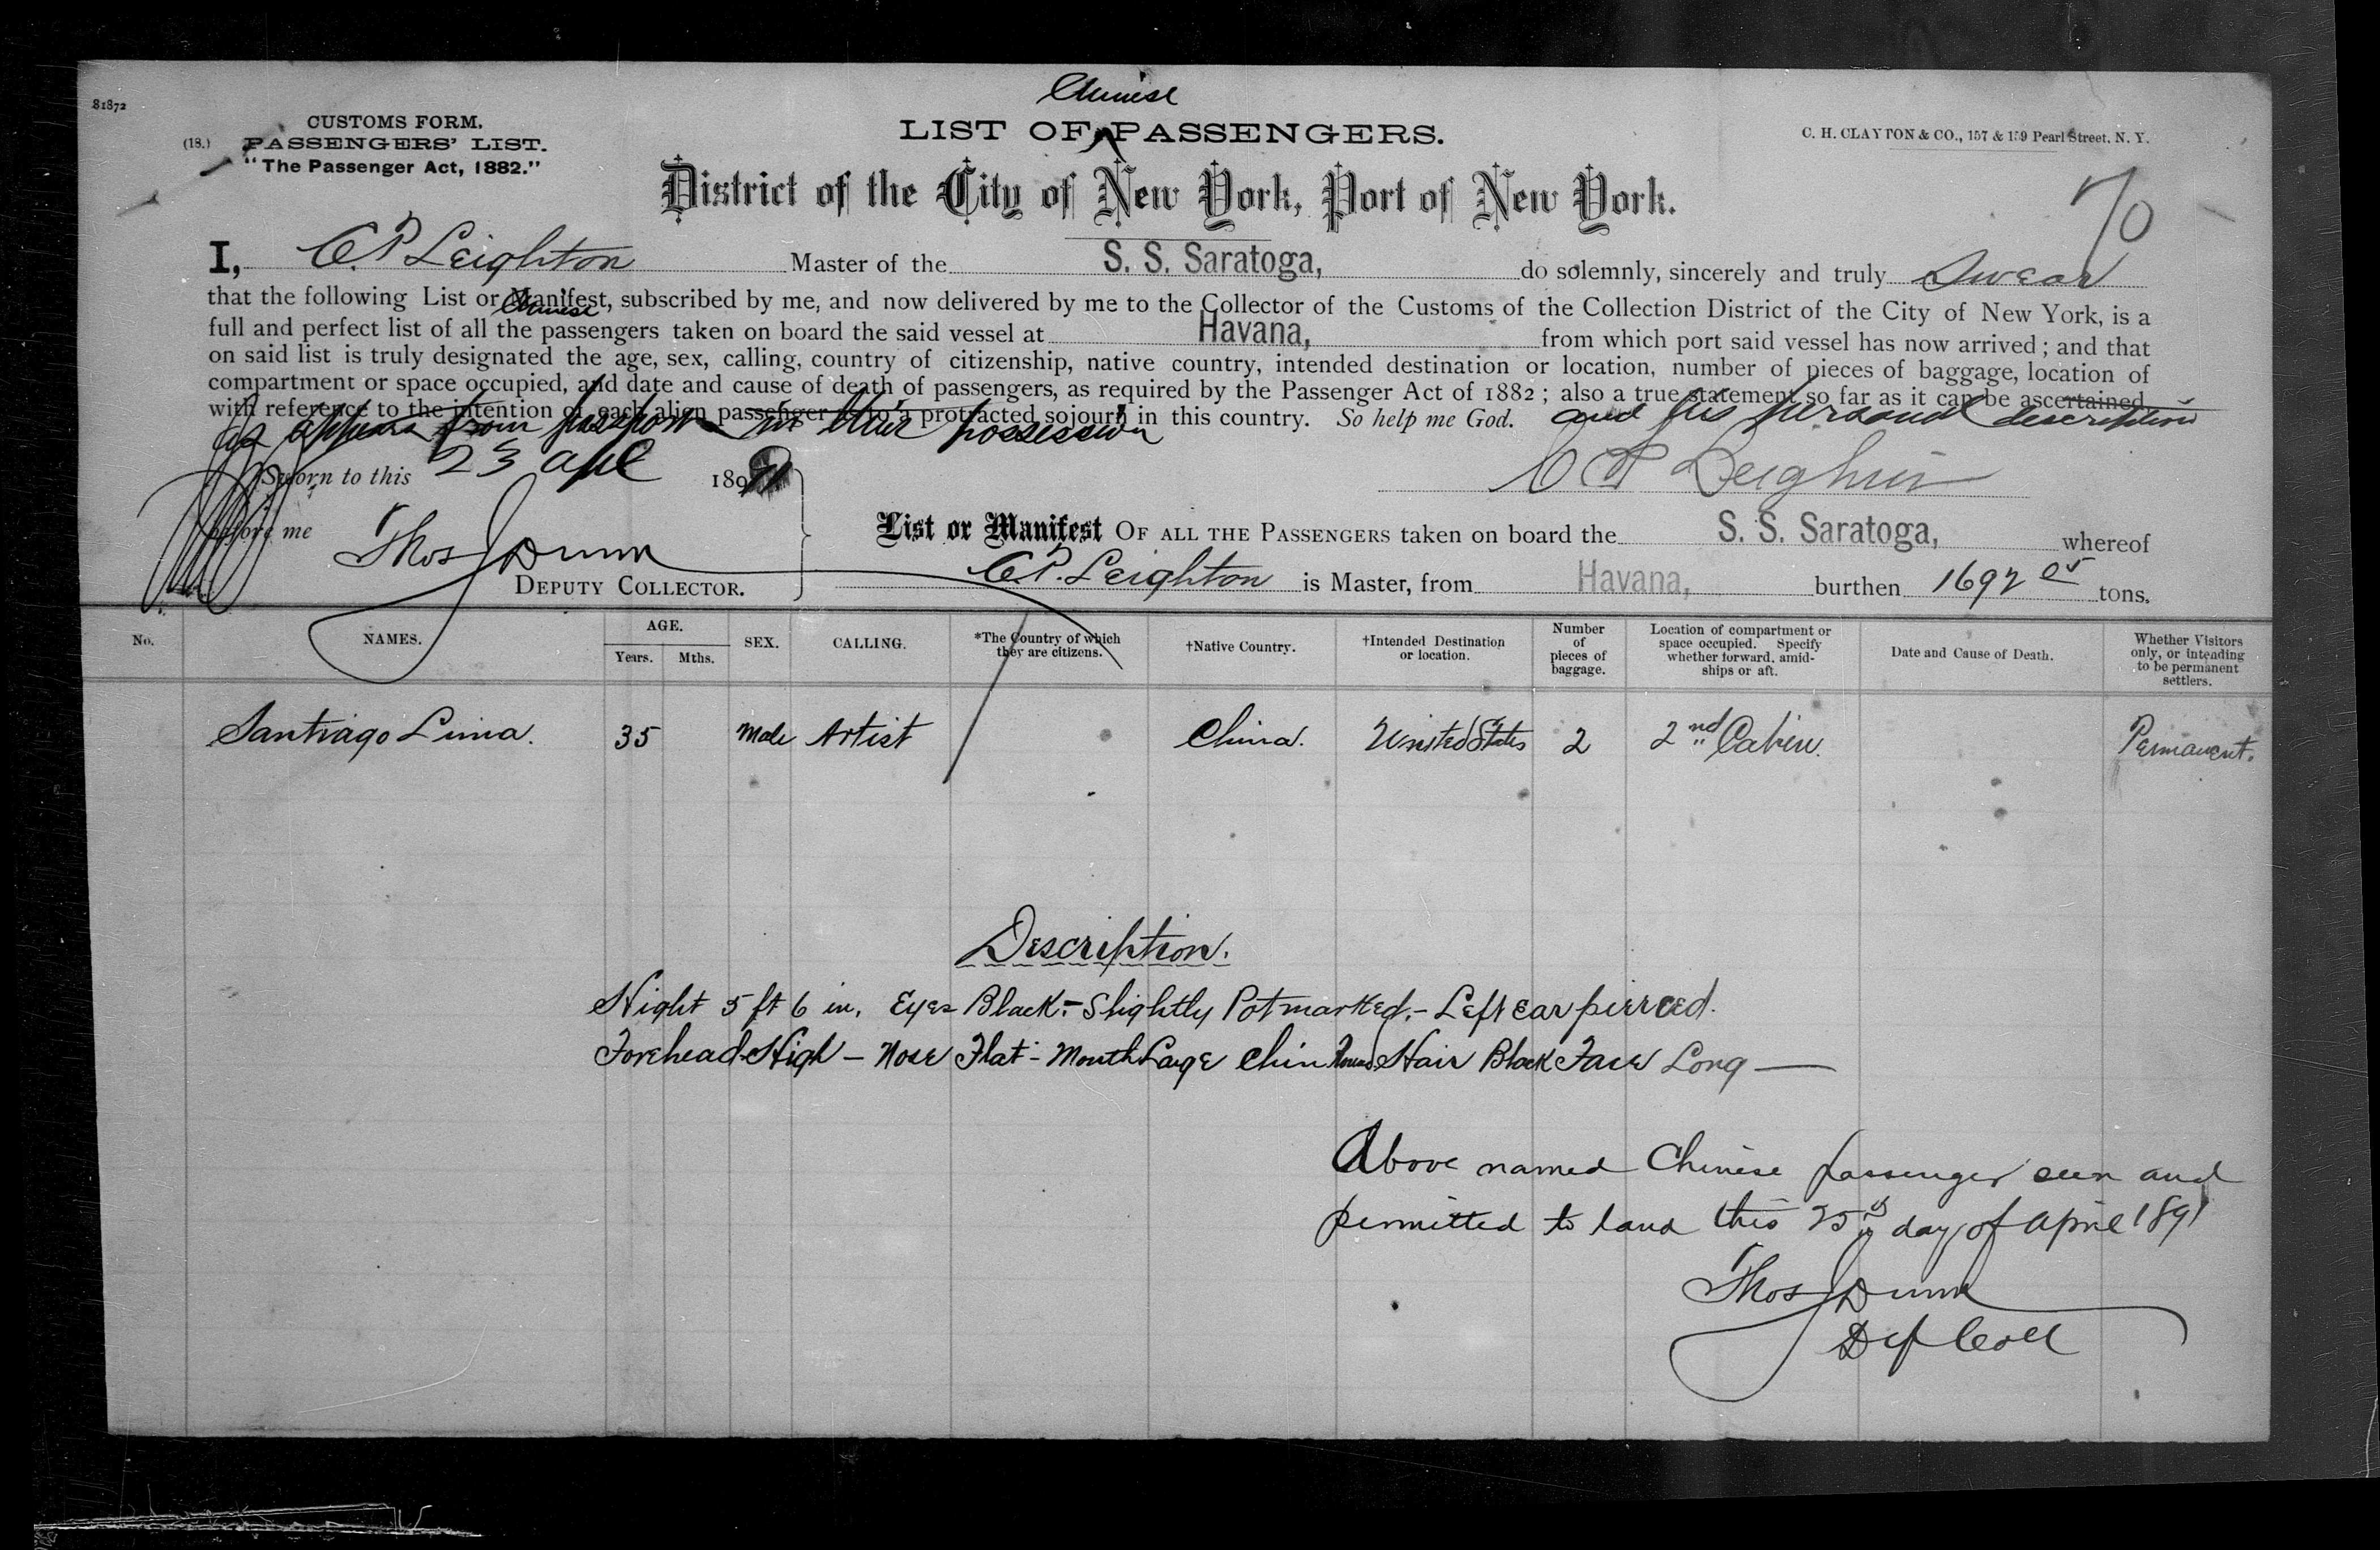 81872
Chinese
CUSTOMS FORM.
(18.) PASSENGERS' LIST.
"The Passenger Act, 1882."
LIST OF PASSENGERS.
C. H. CLAYTON & CO., 157 & 159 Pearl Street, N. Y.
District of the City of New York, Port of New York.
70
I, C. P. Leighton Master of the S. S. Saratoga, do solemnly, sincerely and truly Swear
that the following List or Manifest, subscribed by me, and now delivered by me to the Collector of the Customs of the Collection District of the City of New York, is a
Chinese
full and perfect list of all the passengers taken on board the said vessel at Havana, from which port said vessel has now arrived; and that
on said list is truly designated the age, sex, calling, country of citizenship, native country, intended destination or location, number of pieces of baggage, location of
compartment or space occupied, and date and cause of death of passengers, as required by the Passenger Act of 1882; also a true statement so far as it can be ascertained
with reference to the intention of each alien passenger as to a protracted sojourn in this country. So help me God. and his personal description
as appears from passport in their possession
Sworn to this 23 Apl 1891
C P Leighton
before me Thos J Dunn
DEPUTY COLLECTOR.
List or Manifest OF ALL THE PASSENGERS taken on board the S. S. Saratoga, whereof
C. P. Leighton is Master, from Havana, burthen 1692 tons.
No. NAMES. AGE. Years. Mths. SEX. CALLING. *The Country of which they are citizens. †Native Country. †Intended Destination or location. Number of pieces of baggage. Location of compartment or space occupied. Specify whether forward, amidships or aft. Date and Cause of Death. Whether Visitors only, or intending to be permanent settlers.
Santiago Lima. 35 Male Artist China. United States 2 2nd Cabin. Permanent.
Description.
Hight 5 ft 6 in. Eyes Black.- Slightly Potmarked.- Left ear pierced.
Forehead High - Nose Flat - Mouth Large Chin Round Hair Black Face Long —
Above named Chinese passenger seen and
permitted to land this 25th day of April 1891
Thos J Dunn
Dep Coll